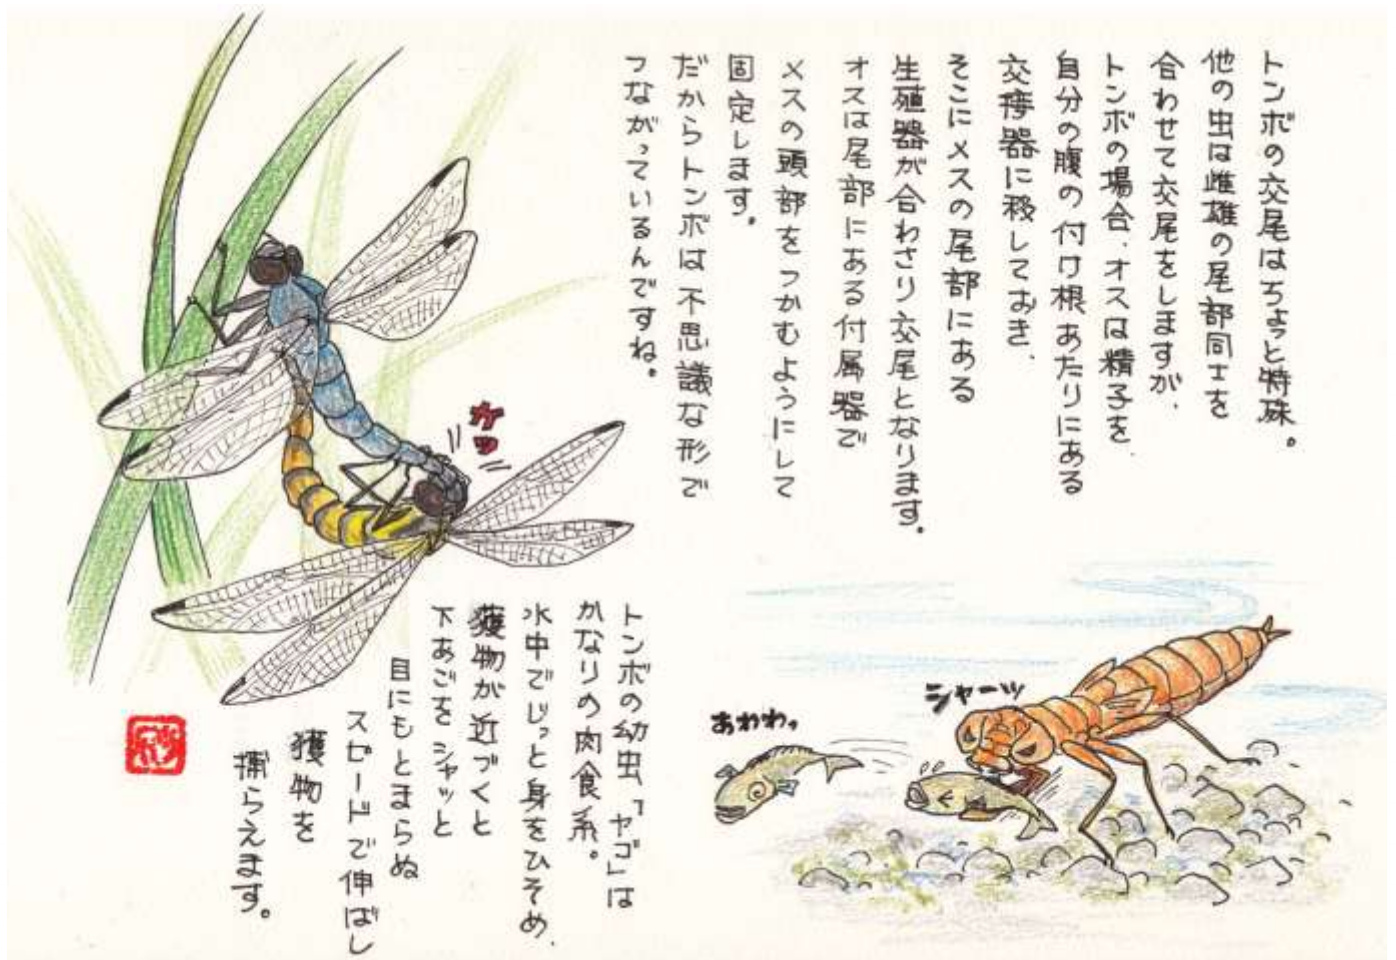 トンボの交尾はちょっと特殊。
他の虫は雌雄の尾部同士を
合わせて交尾をしますが、
トンボの場合、オスは精子を
自分の腹の付け根あたりにある
交接器に移しておき、
そこにメスの尾部にある
生殖器が合わさり交尾となります。
オスは尾部にある付属器で
メスの頭部をつかむようにして
固定します。
だからトンボは不思議な形で
つながっているんですね。
ガッ
トンボの幼虫「ヤゴ」は
かなりの肉食系。
水中でじっと身をひそめ、
獲物が近づくと
下あごをシャッと
目にもとまらぬ
スピードで伸ばし
獲物を
捕らえます。
シャーッ
あわわ。